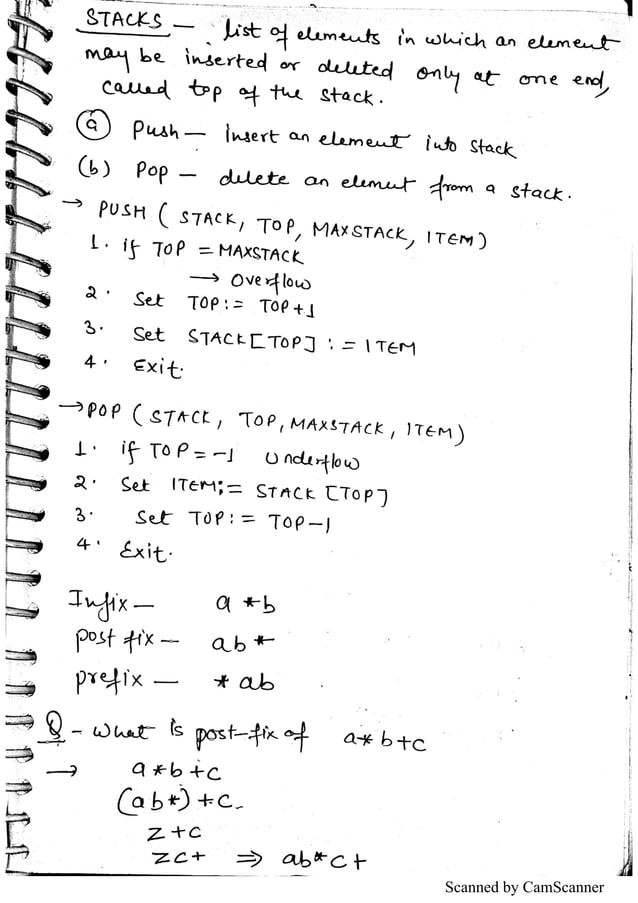 STACKS — list of elements in which an element
may be inserted or deleted only at one end,
called top of the stack.
(a) Push — insert an element into stack
(b) Pop — delete an element from a stack.
→ PUSH ( STACK, TOP, MAXSTACK, ITEM )
1. if TOP = MAXSTACK
→ Overflow
2. Set TOP := TOP+1
3. Set STACK[TOP] := ITEM
4. Exit.
→ POP ( STACK, TOP, MAXSTACK, ITEM )
1. if TOP = -1 Underflow
2. Set ITEM := STACK [TOP]
3. Set TOP := TOP-1
4. Exit.
Infix — a *b
post fix — ab*
prefix — *ab
Q - What is post-fix of a*b+c
→ a*b+c
(ab*)+c
z+c
zc+ ⇒ ab*c+
Scanned by CamScanner